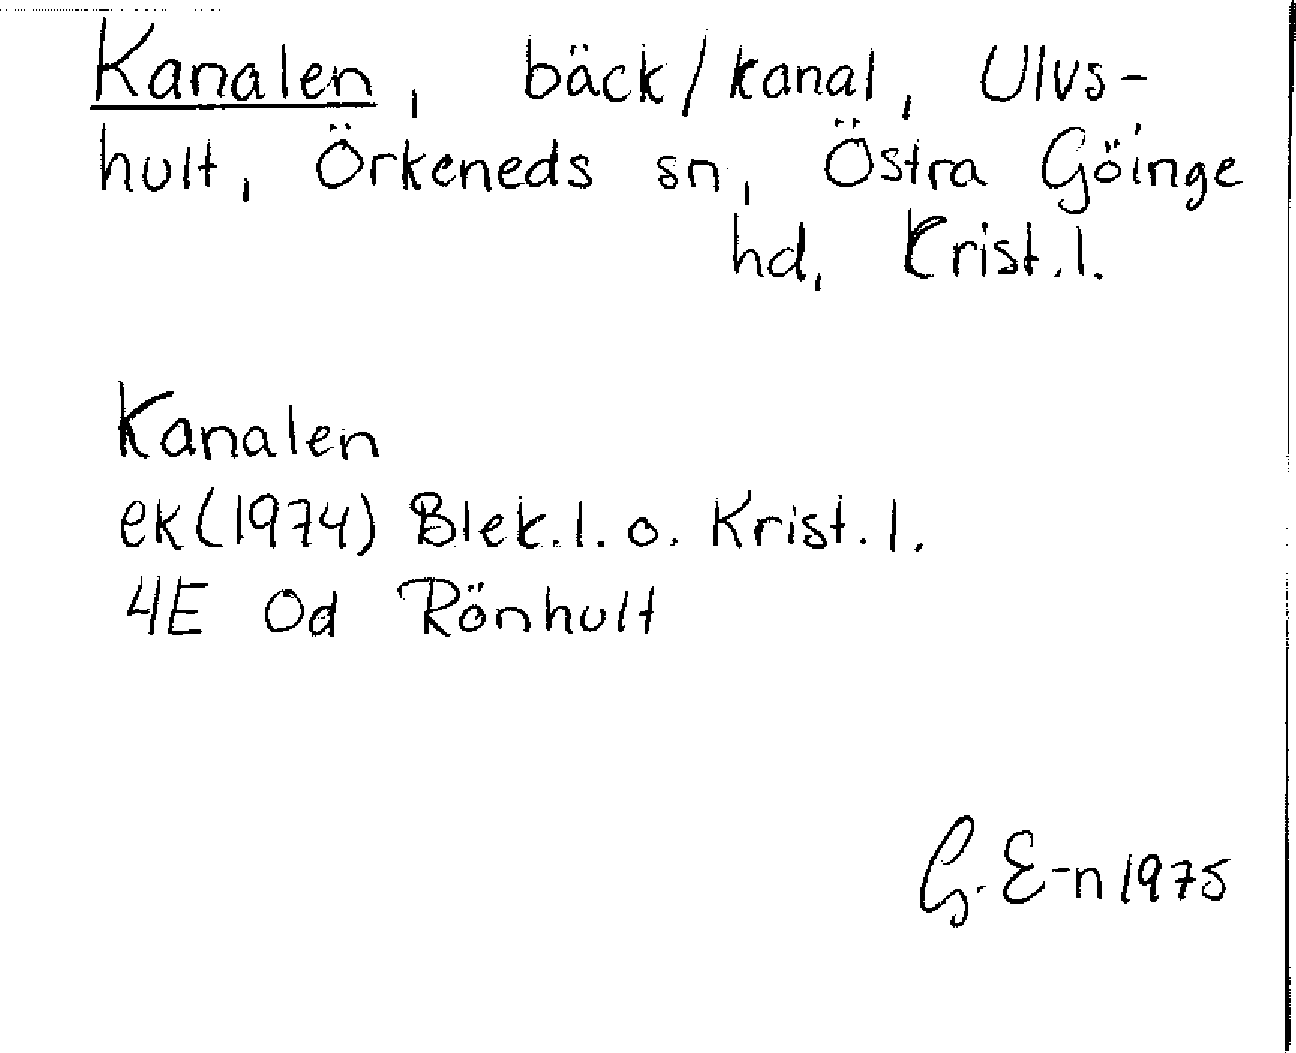 Kanalen, bäck/kanal, Ulvs-
hult, Örkeneds sn, Östra Göinge
hd, Krist.l.
Kanalen
ek(1974) Blek.l. o. Krist.l.
4E 0d Rönhult
G. E-n 1975